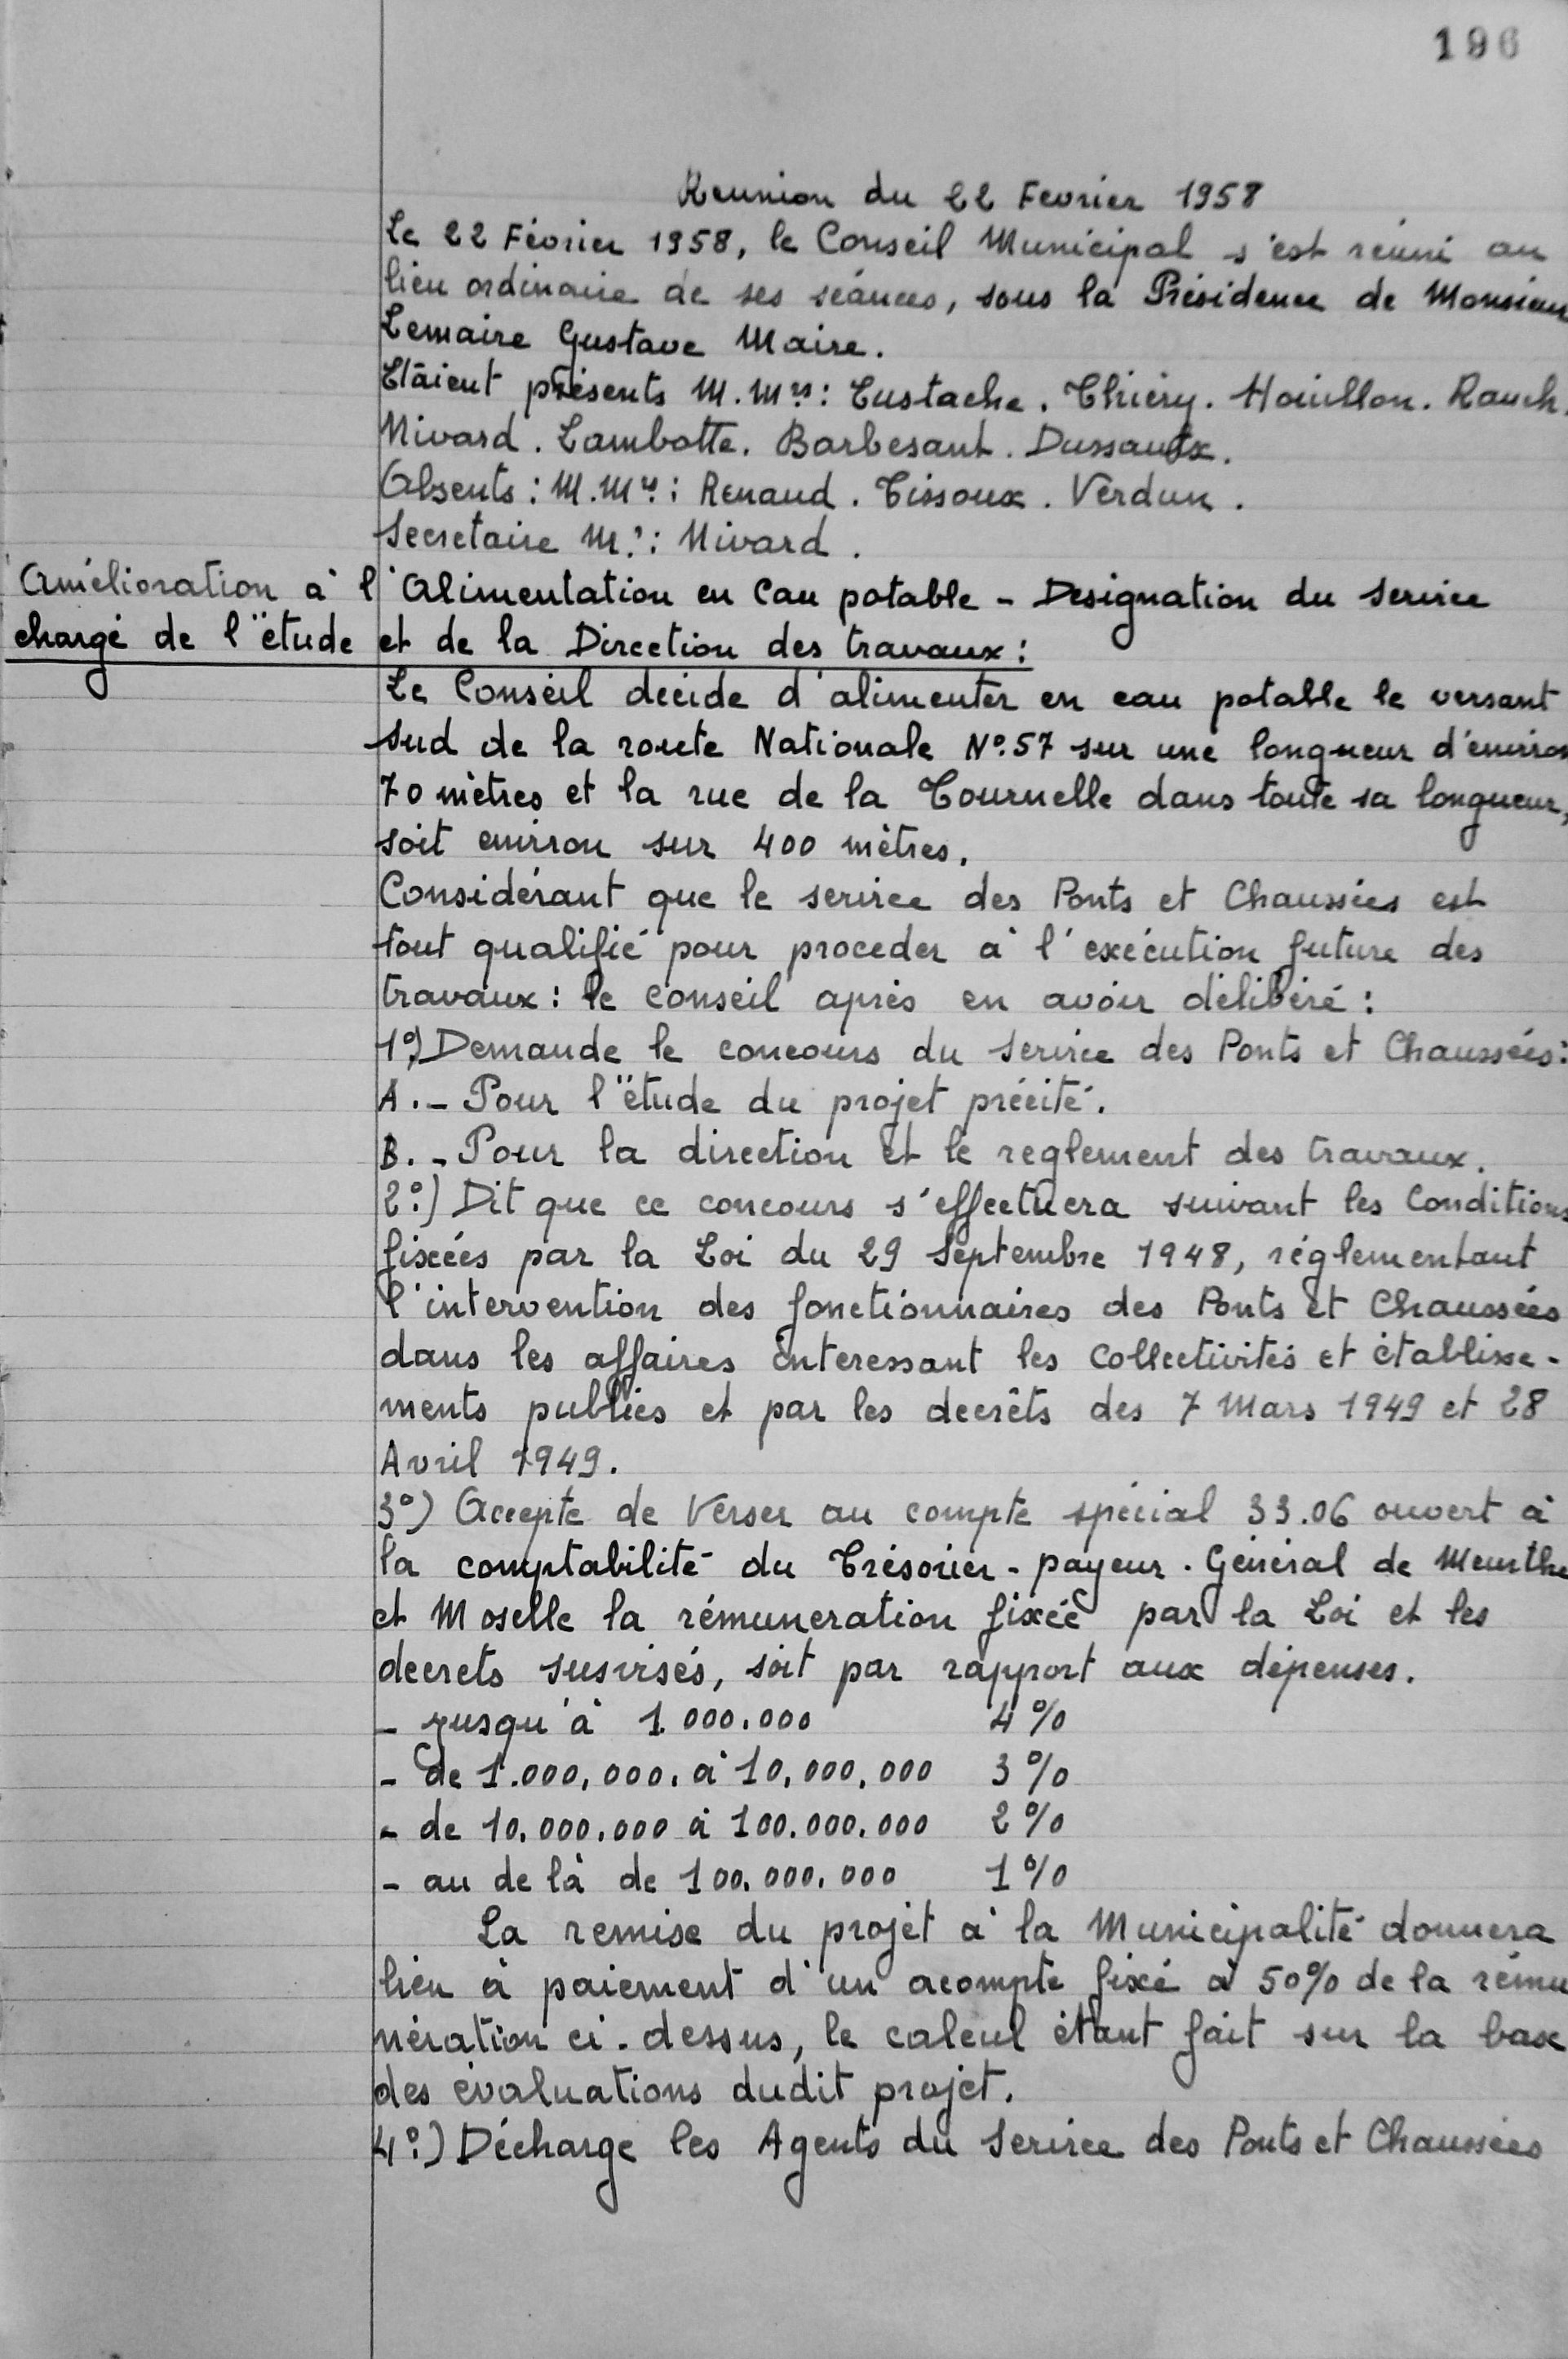 196
Reunion du 22 Fevrier 1958
Le 22 Février 1958, le Conseil Municipal s'est réuni au
lieu ordinaire de ses séances, sous la Présidence de Monsieur
Lemaire Gustave Maire.
Etaient présents M.Mrs: Eustache. Thiéry. Houillon. Rauch.
Nivard. Lambotte. Barbesant. Dussaulx.
Absents: M.Mrs: Renaud. Tissoux. Verdun.
Secretaire Mr: Nivard.
Amélioration à l'Alimentation en Eau potable - Designation du Service
chargé de l'étude et de la Direction des travaux:
Le Conseil décide d'alimenter en eau potable le versant
sud de la route Nationale N°.57 sur une longueur d'environ
70 mètres et la rue de la Tournelle dans toute sa longueur,
soit environ sur 400 mètres.
Considérant que le service des Ponts et Chaussées est
tout qualifié pour proceder à l'exécution future des
travaux: le conseil après en avoir délibéré:
1°) Demande le concours du Service des Ponts et Chaussées:
A.- Pour l'étude du projet précité.
B.- Pour la direction et le reglement des travaux.
2°) Dit que ce concours s'effectuera suivant les Conditions
fixées par la Loi du 29 Septembre 1948, réglementant
l'intervention des fonctionnaires des Ponts et Chaussées
dans les affaires interessant les Collectivités et établisse-
ments publics et par les decrêts des 7 Mars 1949 et 28
Avril 1949.
3°) Accepte de Verser au compte spécial 33.06 ouvert à
la comptabilité du Trésorier-payeur.Général de Meurthe
et Moselle la rémuneration fixée par la Loi et les
decrets susvisés, soit par rapport aux dépenses.
- jusqu'à 1.000.000 4%
- de 1.000.000. à 10.000.000 3%
- de 10.000.000 à 100.000.000 2%
- au de là de 100.000.000 1%
La remise du projet à la Municipalité donnera
lieu à paiement d'un acompte fixé à 50% de la rému
nération ci-dessus, le calcul étant fait sur la base
des évaluations dudit projet.
4°) Décharge les Agents du Service des Ponts et Chaussées